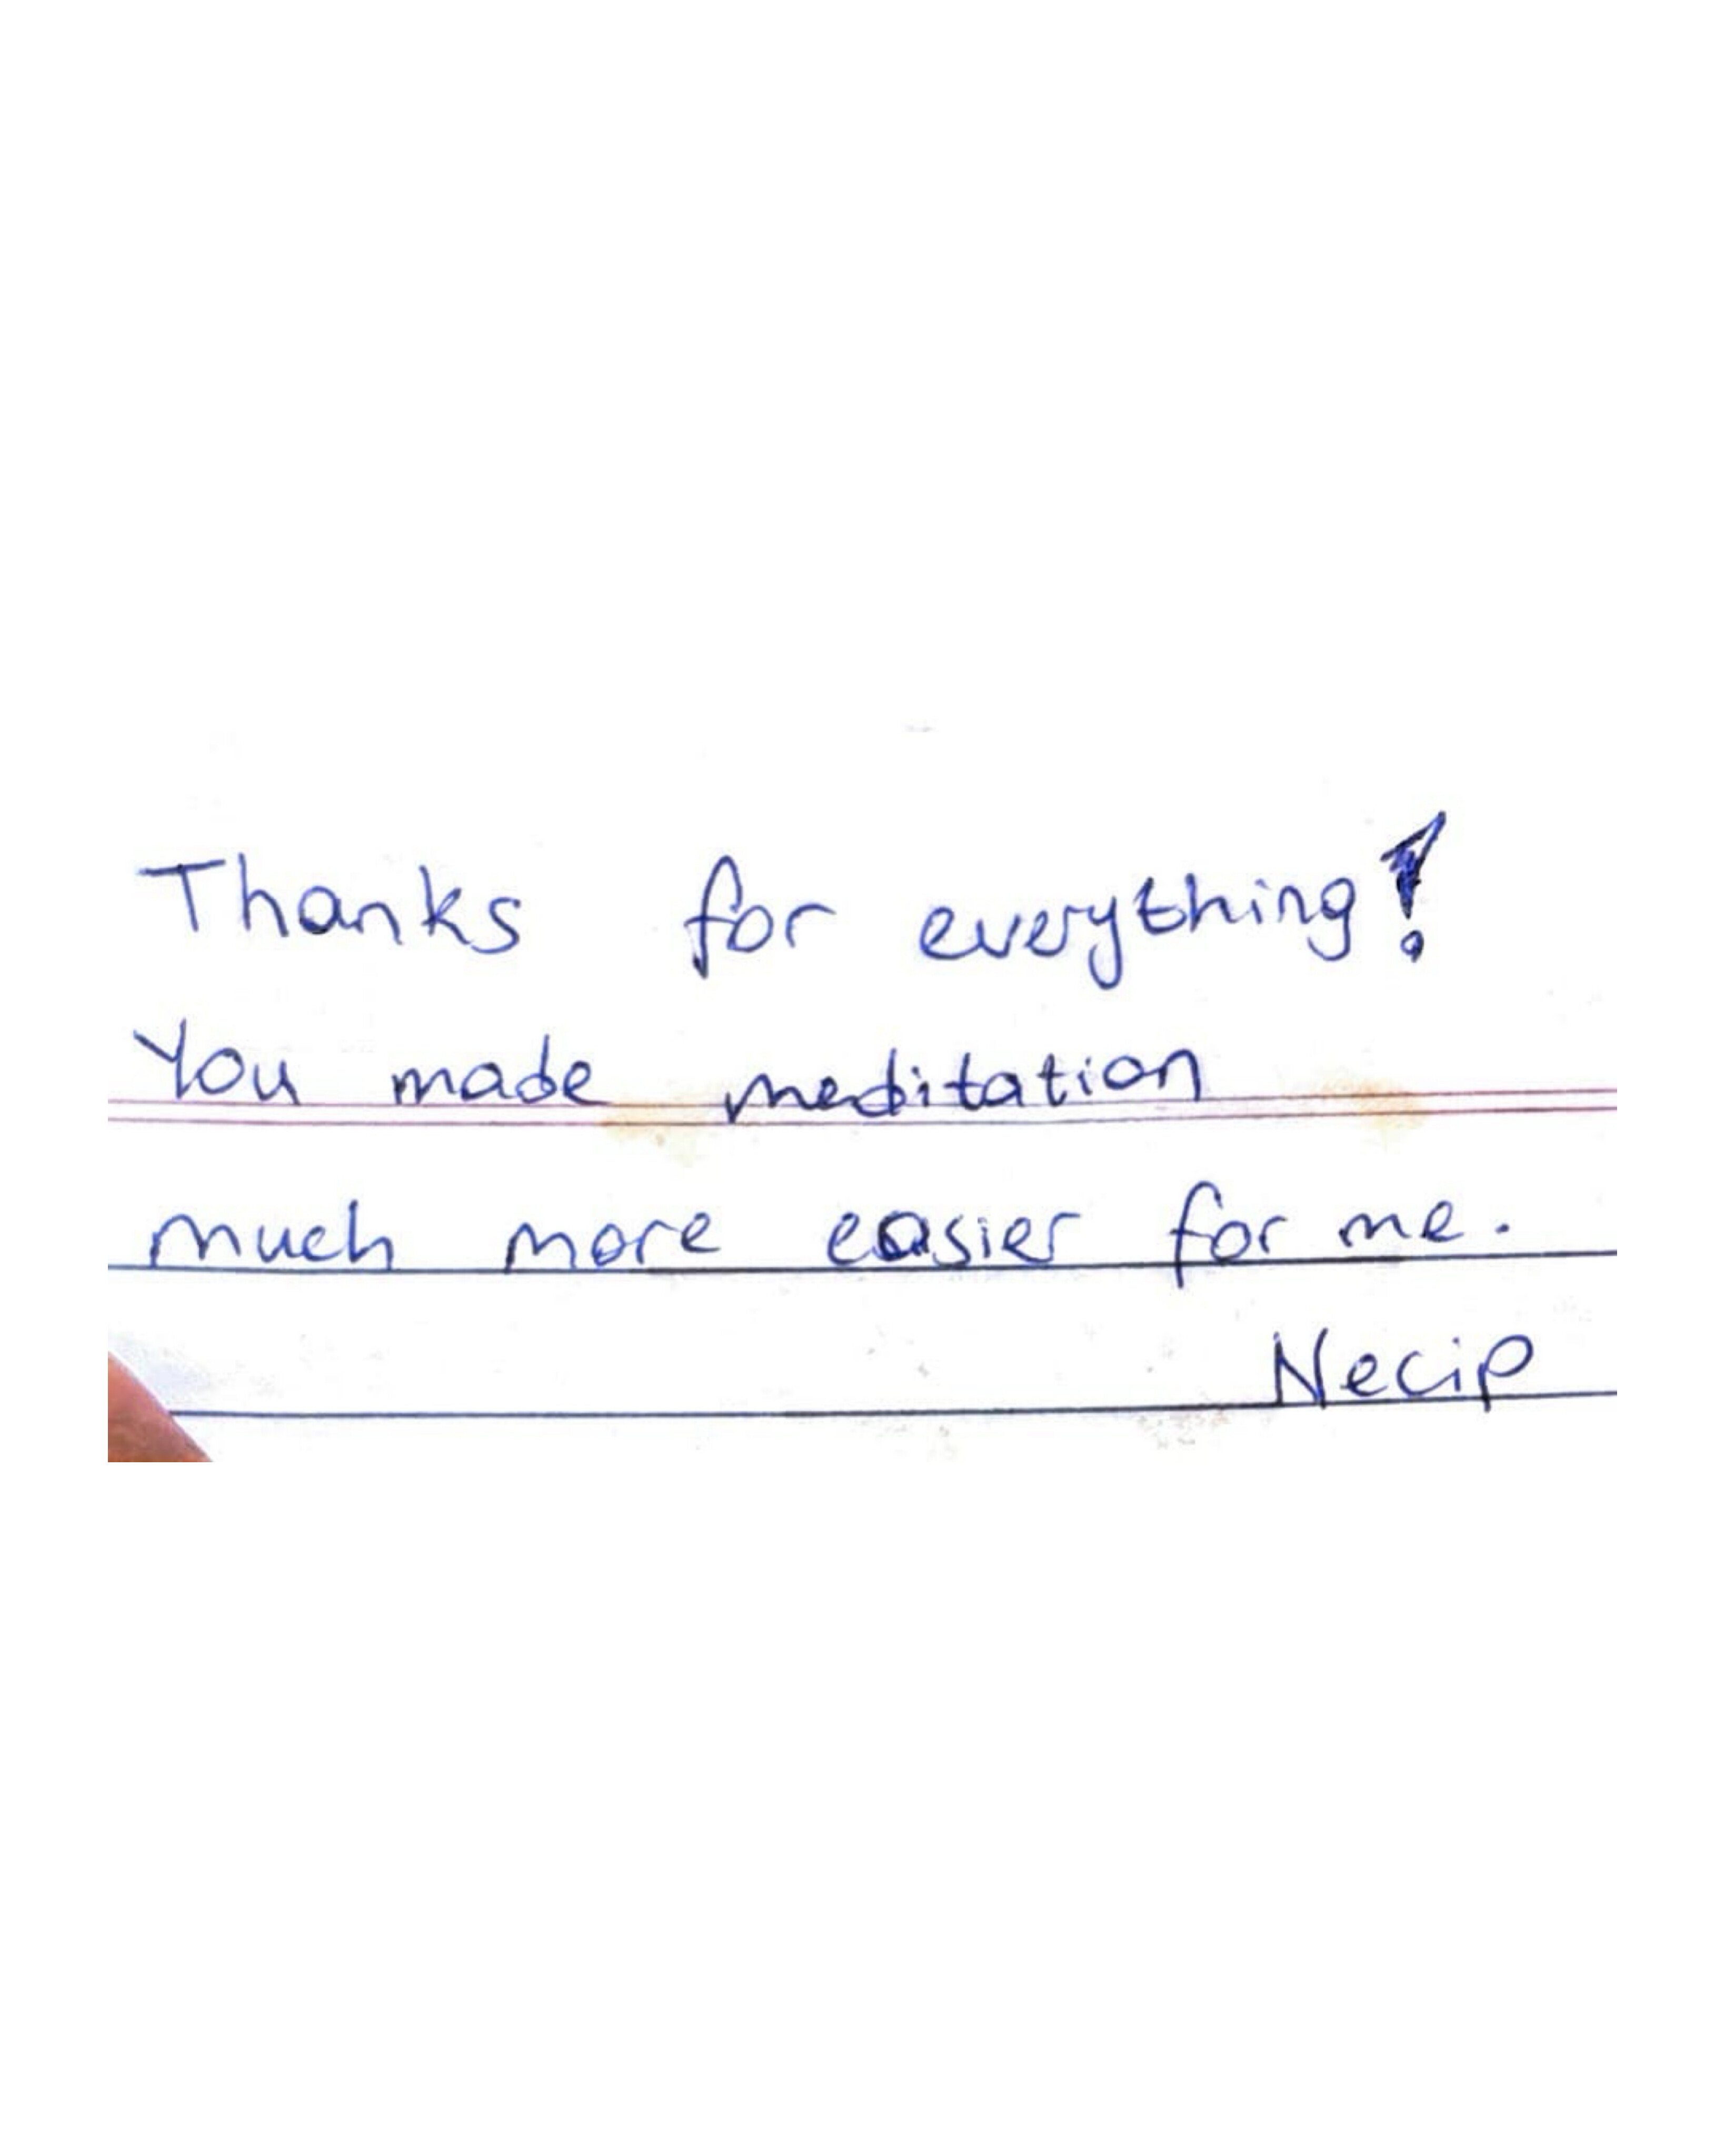 Thanks for everything!
You made meditation
much more easier for me.
Necip